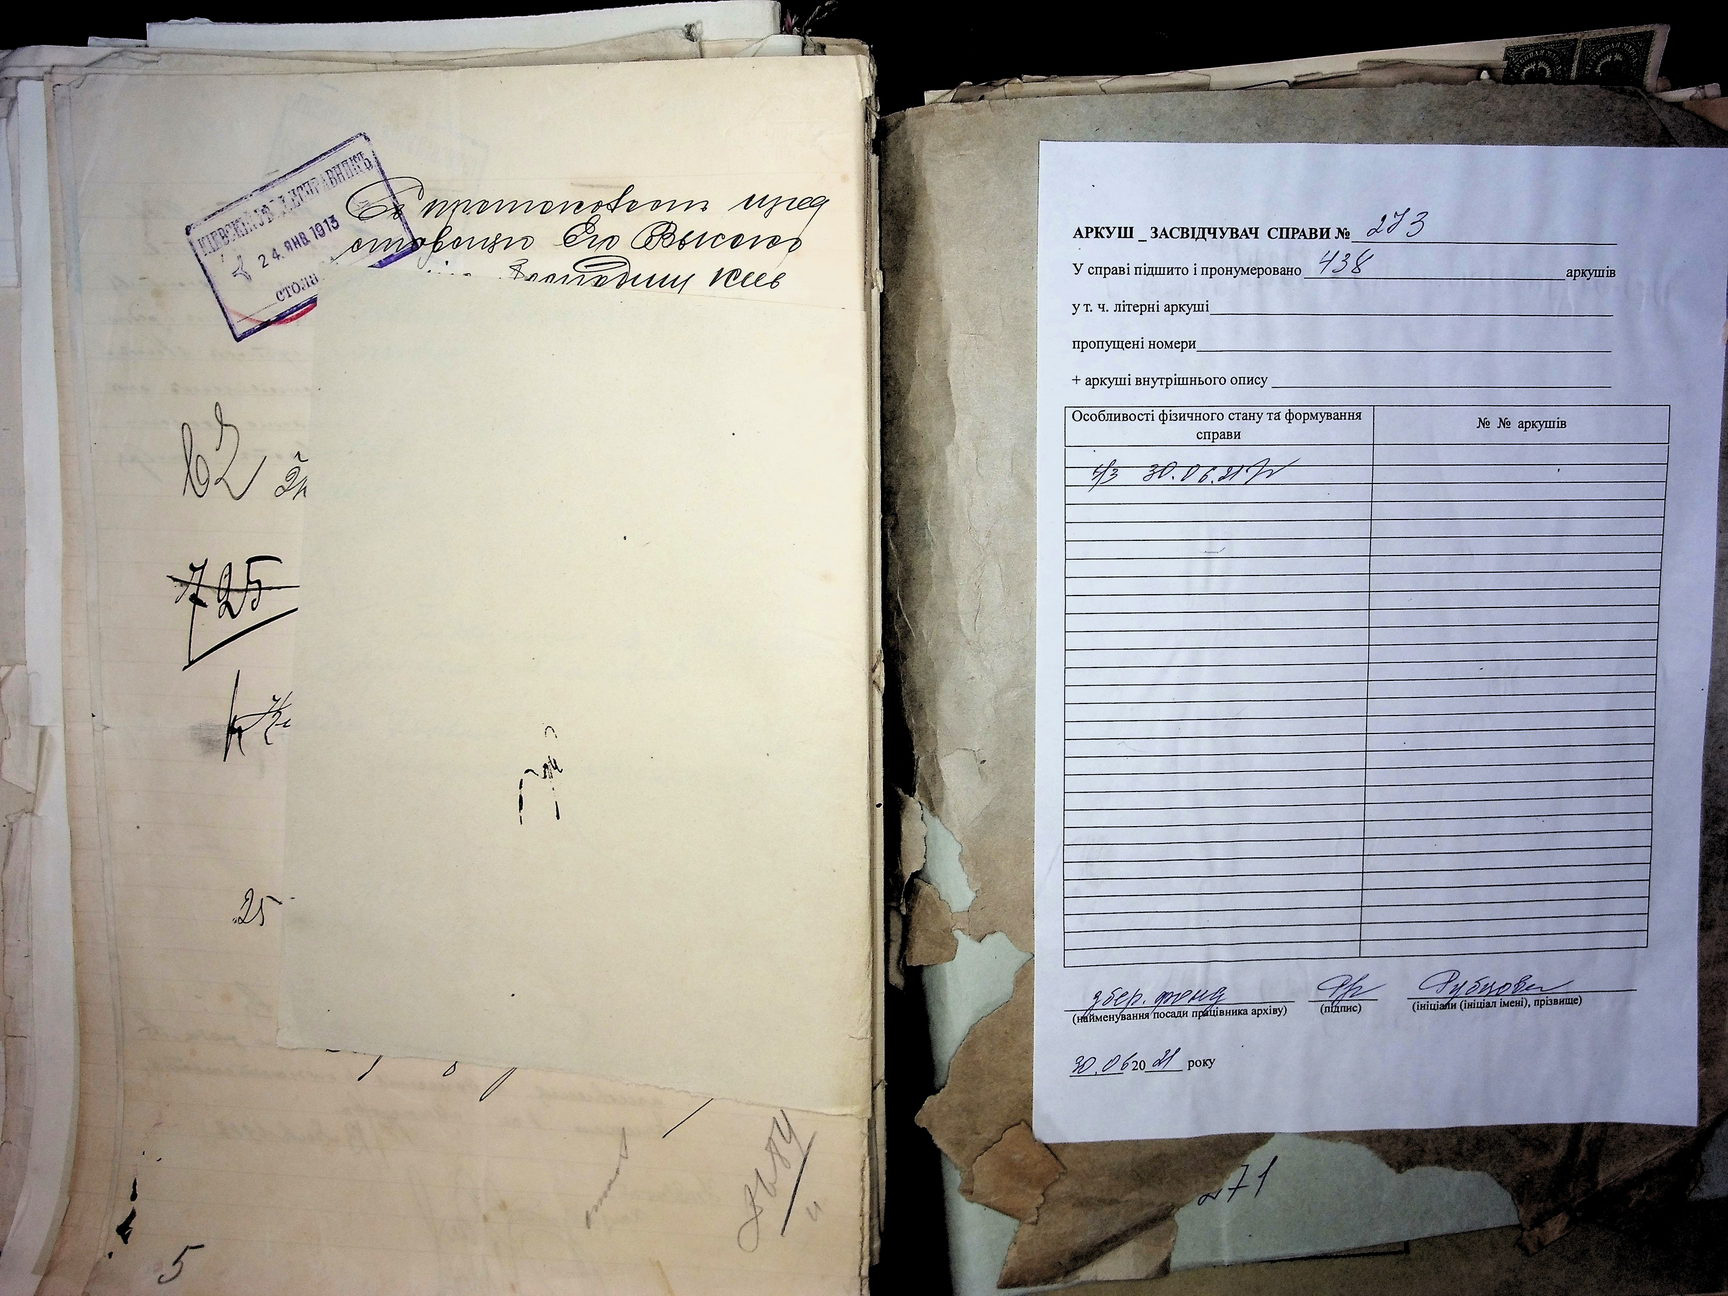 КІЕВСКІЙ УѢЗД. ИСПРАВНИКЪ
24. ЯНВ 1913
СТОЛЪ
Съ протоколомъ пред
ставляю Его Высоко
Господину Кіев
62
725
25
5
АРКУШ _ ЗАСВІДЧУВАЧ СПРАВИ № 273
У справі підшито і пронумеровано 438 аркушів
у т. ч. літерні аркуші
пропущені номери
+ аркуші внутрішнього опису
Особливості фізичного стану та формування справи
№ № аркушів
30.06.21
збер. фонд Рубцова
(найменування посади працівника архіву) (підпис) (ініціали (ініціал імені), прізвище)
30.06 20 21 року
271